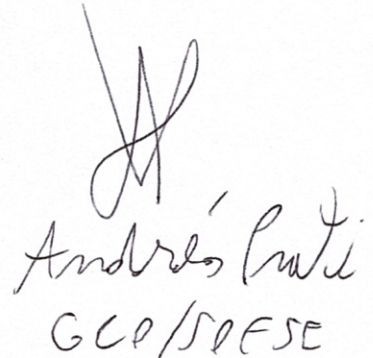 Andrés Prati
GCP/SPESE